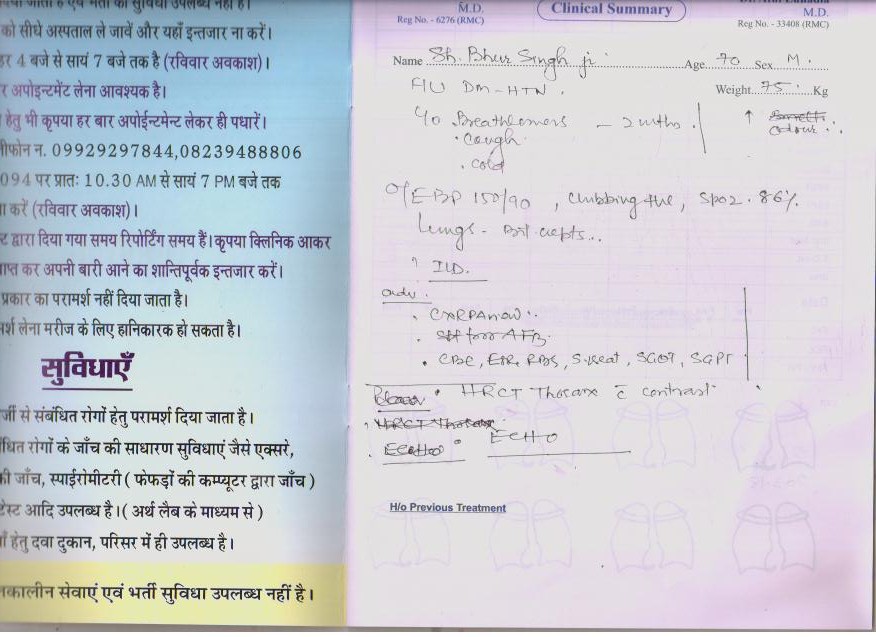 को सीधे अस्पताल ले जावें और यहाँ इन्तजार ना करें।
4 बजे से सायं 7 बजे तक है (रविवार अवकाश)।
अपोइन्टमेंट लेना आवश्यक है।
हेतु भी कृपया हर बार अपोईन्टमेन्ट लेकर ही पधारें।
न. 09929297844,08239488806
094 पर प्रातः 10.30 AM से सायं 7 PM बजे तक
करें (रविवार अवकाश)।
द्वारा दिया गया समय रिपोर्टिंग समय हैं। कृपया क्लिनिक आकर
कर अपनी बारी आने का शान्तिपूर्वक इन्तजार करें।
प्रकार का परामर्श नहीं दिया जाता है।
लेना मरीज के लिए हानिकारक हो सकता है।
सुविधाएँ
से संबंधित रोगों हेतु परामर्श दिया जाता है।
रोगों के जाँच की साधारण सुविधाएं जैसे एक्सरे,
जाँच, स्पाईरोमीटरी ( फेफड़ों की कम्प्यूटर द्वारा जाँच )
आदि उपलब्ध है। ( अर्थ लैब के माध्यम से )
हेतु दवा दुकान, परिसर में ही उपलब्ध है।
सेवाएं एवं भर्ती सुविधा उपलब्ध नहीं है।
M.D.
Reg No. - 6276 (RMC)
Clinical Summary
M.D.
Reg No. - 33408 (RMC)
Name Sh. Bhur Singh ji Age 70 Sex M.
DM-HTN. Weight 75 Kg
Breathlessness - 2 mths
. cough
. cold
BP 150/90 , clubbing +ve, SpO2 . 86%
Lungs -
? ILD.
adv.
. CXR PA view
. for AFB
. CBC, ESR, RBS, S.creat, SGOT, SGPT
. HRCT Thorax c contrast
HRCT Thorax
ECHO
H/o Previous Treatment